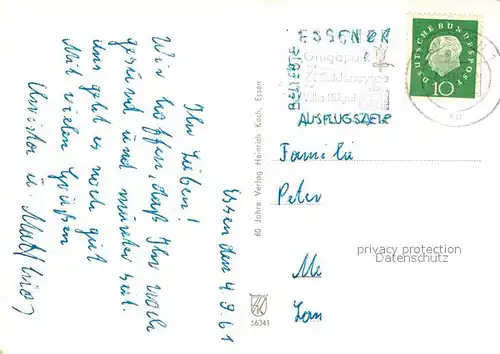 Essen den 4.9.61
Ihr Lieben!
Wir hoffen, daß Ihr noch
gesund und munter seit.
Uns geht es noch gut
Mit vielen Grüßen
Christa u.
60 Jahre Verlag Heinrich Koch, Essen
56341
BELIEBTE
ESSENER
Grugapark
Villa Hügel
AUSFLUGSZIELE
DEUTSCHE BUNDESPOST
10
Familie
Peter
privacy protection
Datenschutz